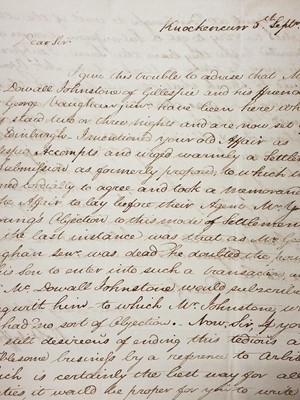 Knockeneurr 5th Sept
Dear Sir
I give this trouble to advise that M
Dowall Johnstone of Gillespie and his friend
George Vaughan have been here
stayd two or three nights and are now set
Edinburgh. I mentioned your old Affair as
Accompts and urged warmly a Settle
Submission as formerly proposed, to which
cordially to agree and took a Memoran
the Affair to lay before their Agent Mr
Objection to this mode of Settlemen
the last instance was that as Mr
ghan Senr. was dead he doubted the
his son to enter into such a transaction,
Mr. McDowall Johnstone would subscrib
with him, to which Mr. Johnstone,
had no sort of Objection. Now, Sir, if you
still desireous of ending this tedious a
blesome business by a reference to Arbi
which is certainly the best way for all
ties it would be proper for you to write